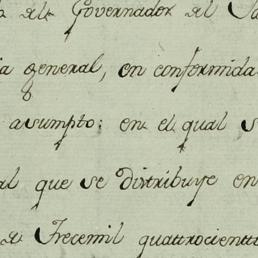 del Governador del
general, en conformida
asumpto: en el qual s
que se distribuye en
de Trecemil quattrocientt